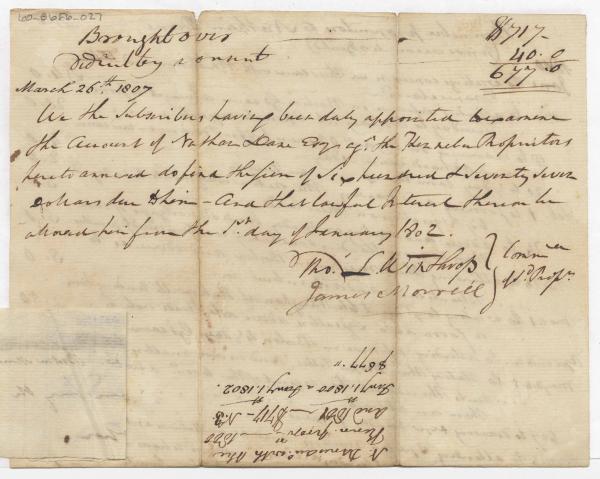 60-8686-027
Brought over $717-
Deduct by consent 40.0
677.0
March 26th 1807
We the Subscribers having been duly appointed to examine
the Account of Nathan Dane Esqr agt. the Kennebec Proprietors
hereto annexed do find the sum of Six hundred & Seventy Seven
dollars due to him - And that lawful Interest thereon be
allowed him from the 1st day of January 1802.
Tho's L Winthrop
James Morrill
Commee
of sd Proprs
with the
1800
and 1801 $717
Jany 1. 1800 a Jany 1. 1802.
$677.